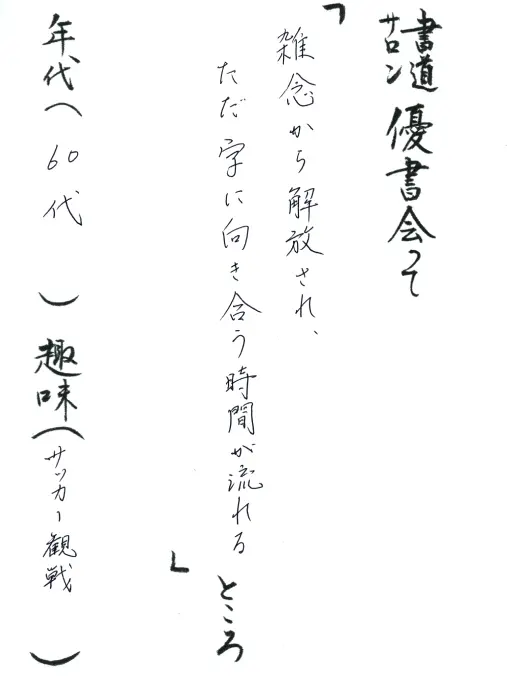 書道サロン 優書会って
「雑念から解放され、
ただ字に向き合う時間が流れる」ところ
年代(60代) 趣味(サッカー観戦)